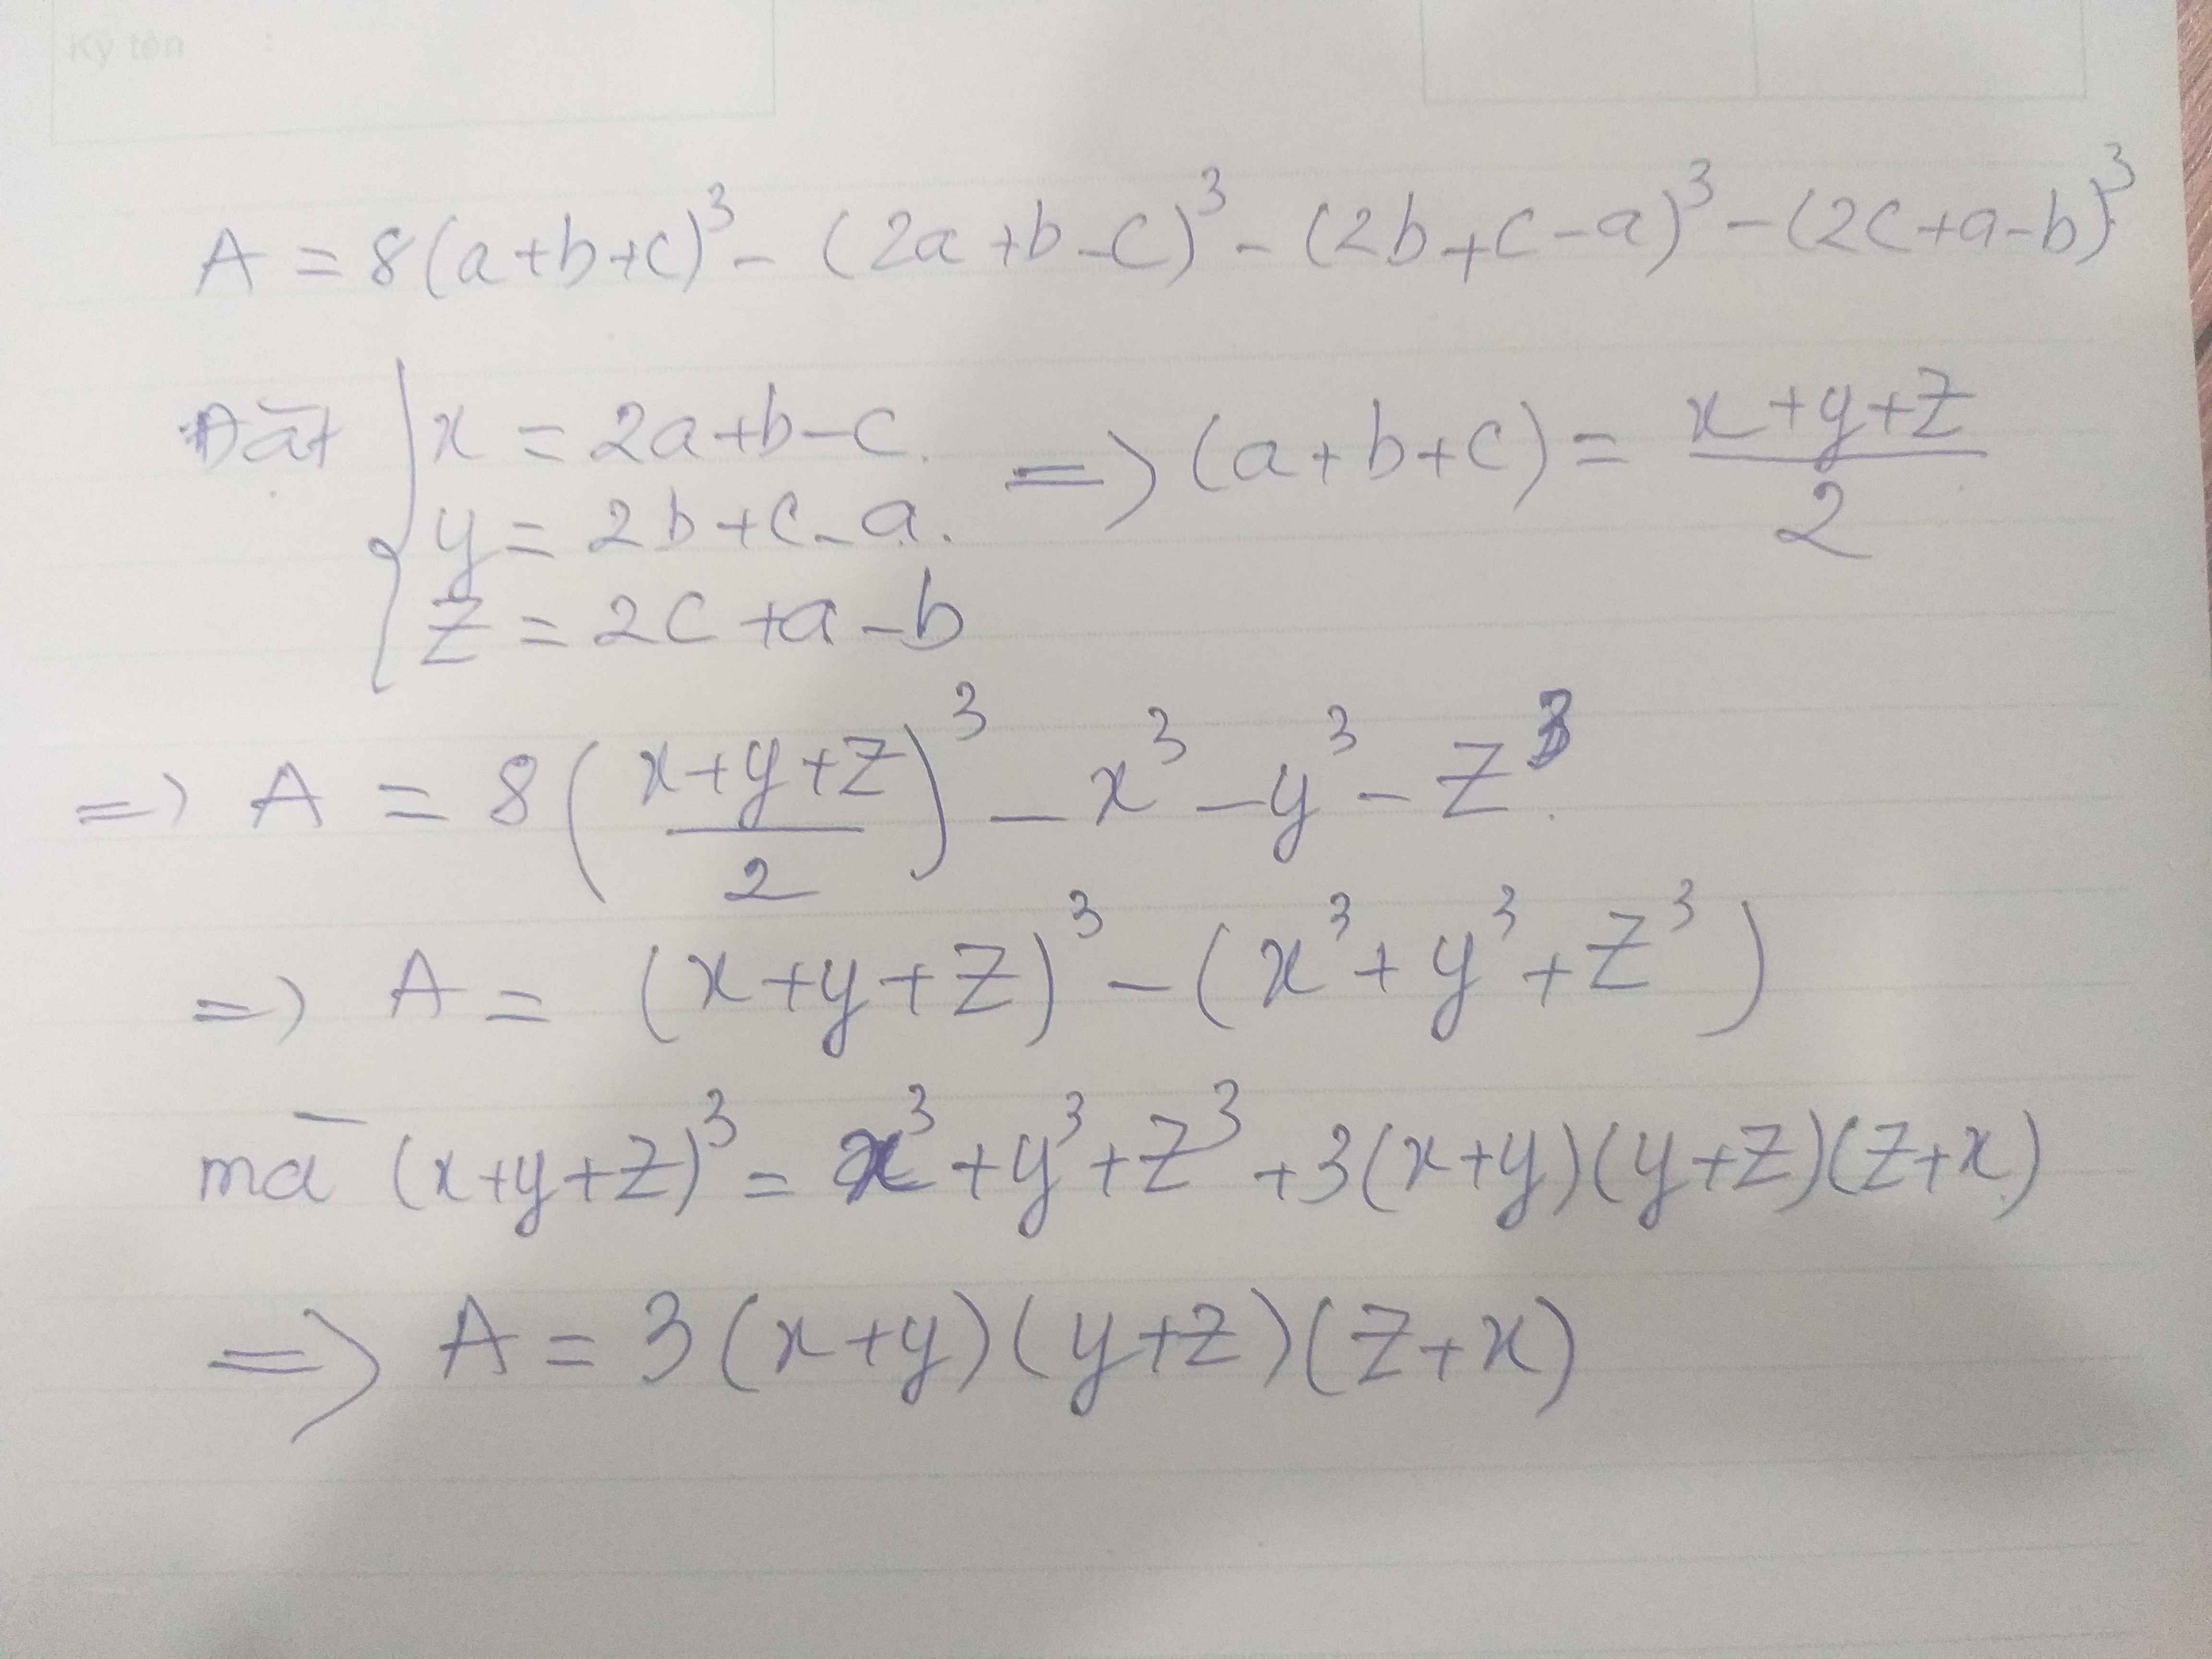 Ký tên :
A = 8(a+b+c)³ - (2a+b-c)³ - (2b+c-a)³ - (2c+a-b)³
Đặt { x = 2a+b-c. => (a+b+c) = (x+y+z)/2
y = 2b+c-a.
z = 2c+a-b
=> A = 8((x+y+z)/2)³ - x³ - y³ - z³.
=> A = (x+y+z)³ - (x³+y³+z³)
mà (x+y+z)³ = x³+y³+z³+3(x+y)(y+z)(z+x)
=> A = 3(x+y)(y+z)(z+x)